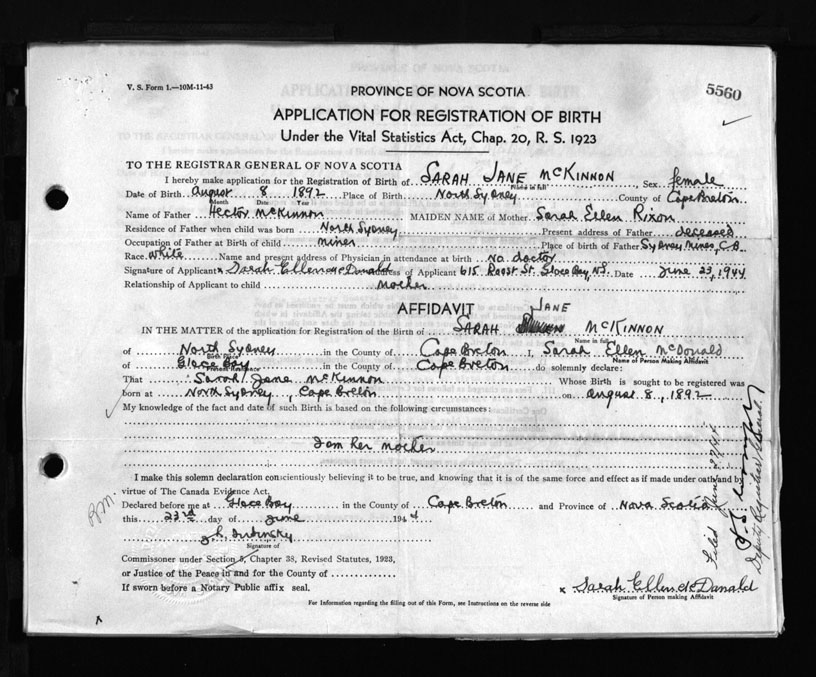 V. S. Form 1.—10M-11-43
5560
PROVINCE OF NOVA SCOTIA
APPLICATION FOR REGISTRATION OF BIRTH
Under the Vital Statistics Act, Chap. 20, R. S. 1923
TO THE REGISTRAR GENERAL OF NOVA SCOTIA
I hereby make application for the Registration of Birth of SARAH JANE McKINNON, Sex female
Printed in full
Date of Birth August 8 1892 Place of Birth North Sydney County of Cape Breton
Month Date Year
Name of Father Hector McKinnon MAIDEN NAME of Mother Sarah Ellen Rixon
Residence of Father when child was born North Sydney Present address of Father deceased
Occupation of Father at Birth of child miner Place of birth of Father Sydney Mines, C.B.
Race white Name and present address of Physician in attendance at birth no doctor
Signature of Applicant x Sarah Ellen McDanald Address of Applicant 615 St. Glace Bay, N.S. Date June 23, 1944
Relationship of Applicant to child mother
AFFIDAVIT
JANE
IN THE MATTER of the application for Registration of the Birth of SARAH McKINNON
Name in full
of North Sydney in the County of Cape Breton I, Sarah Ellen McDonald
Birth Place
Name of Person Making Affidavit
of Glace Bay in the County of Cape Breton do solemnly declare:
Present Residence
That Sarah Jane McKinnon Whose Birth is sought to be registered was
born at North Sydney, Cape Breton on August 8, 1892
My knowledge of the fact and date of such Birth is based on the following circumstances:
I am her mother
I make this solemn declaration conscientiously believing it to be true, and knowing that it is of the same force and effect as if made under oath and by
virtue of The Canada Evidence Act.
Declared before me at Glace Bay in the County of Cape Breton and Province of Nova Scotia
this 23rd day of June 1944
Signature of
Commissioner under Section 5, Chapter 38, Revised Statutes, 1923,
or Justice of the Peace in and for the County of
If sworn before a Notary Public affix seal.
x Sarah Ellen McDanald
Signature of Person making Affidavit
For Information regarding the filling out of this Form, see Instructions on the reverse side
Filed June 27/44
Deputy Registrar General